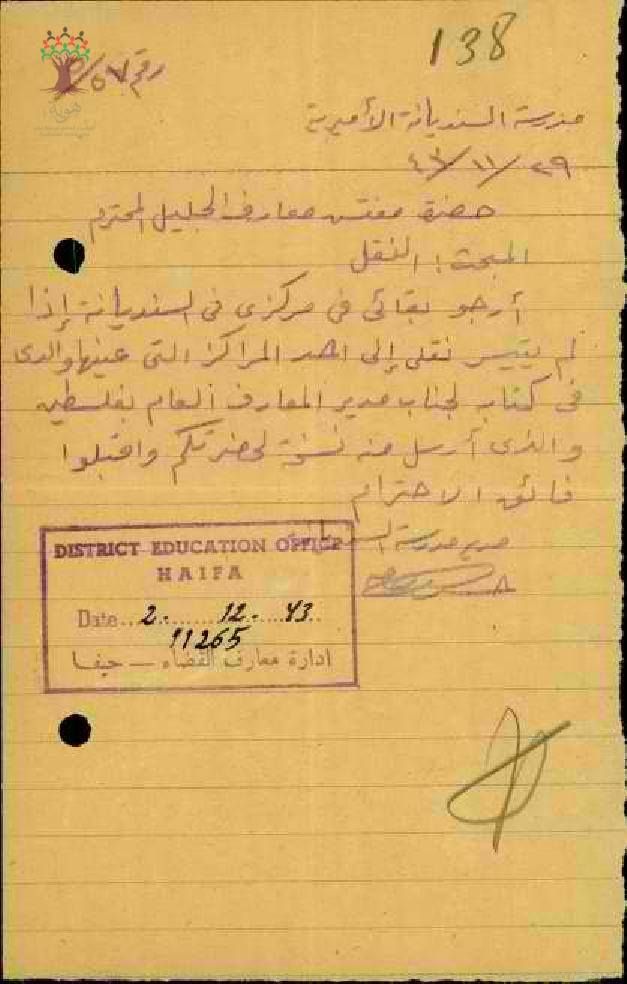 138
رقم ٥٧/٥
هوية
مدرسة السنديانة الأميرية
٢٩/١١/٤٣
حضرة مفتش معارف الجليل المحترم
المبحث : النقل
أرجو بقائي في مركزي في السنديانة إذا
لم يتيسر نقلي إلى احد المراكز التي عينها والدي
في كتاب لجناب مدير المعارف العام بفلسطين
والذي أرسل منه نسخة لحضرتكم واقبلوا
فائق الاحترام
مدير مدرسة السنديانة
DISTRICT EDUCATION OFFICE
HAIFA
Date... 2. ...... 12. .... 43..
11265
ادارة معارف القضاء — حيفا